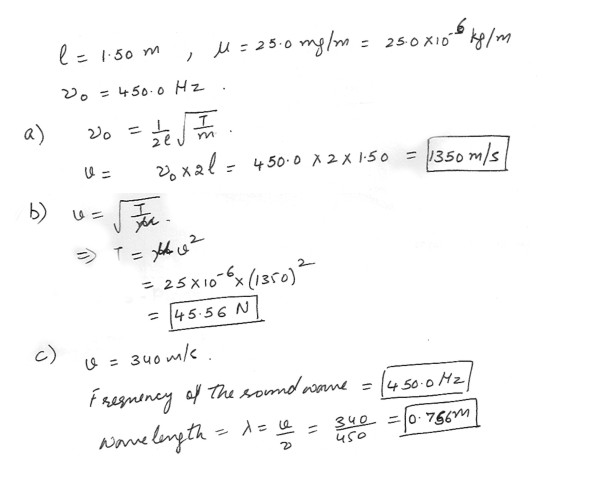 l = 1.50 m , μ = 25.0 mg/m = 25.0 × 10⁻⁶ kg/m
ν₀ = 450.0 Hz .
a) ν₀ = 1/2l √(T/m) .
v = ν₀ × 2l = 450.0 × 2 × 1.50 = 1350 m/s
b) v = √(T/μ) .
⇒ T = μ v²
= 25 × 10⁻⁶ × (1350)²
= 45.56 N
c) v = 340 m/s .
Frequency of the sound wave = 450.0 Hz
Wavelength = λ = v/ν = 340/450 = 0.756m